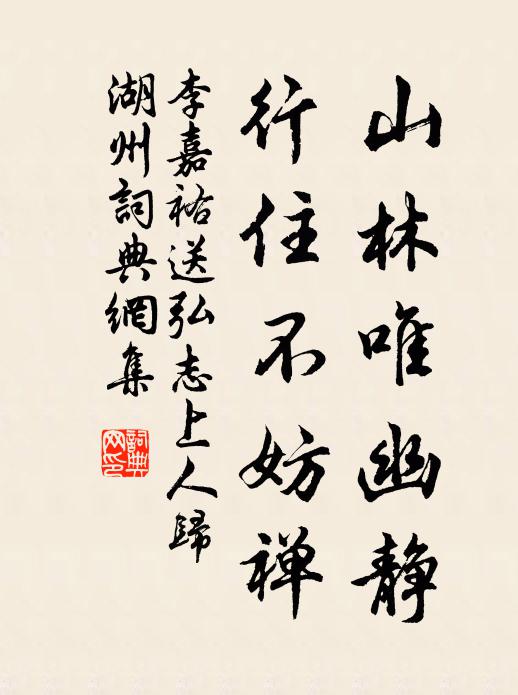 山林唯幽静
行住不妨禅
李嘉祐送弘志上人歸
湖州詞典網集
詞典網印